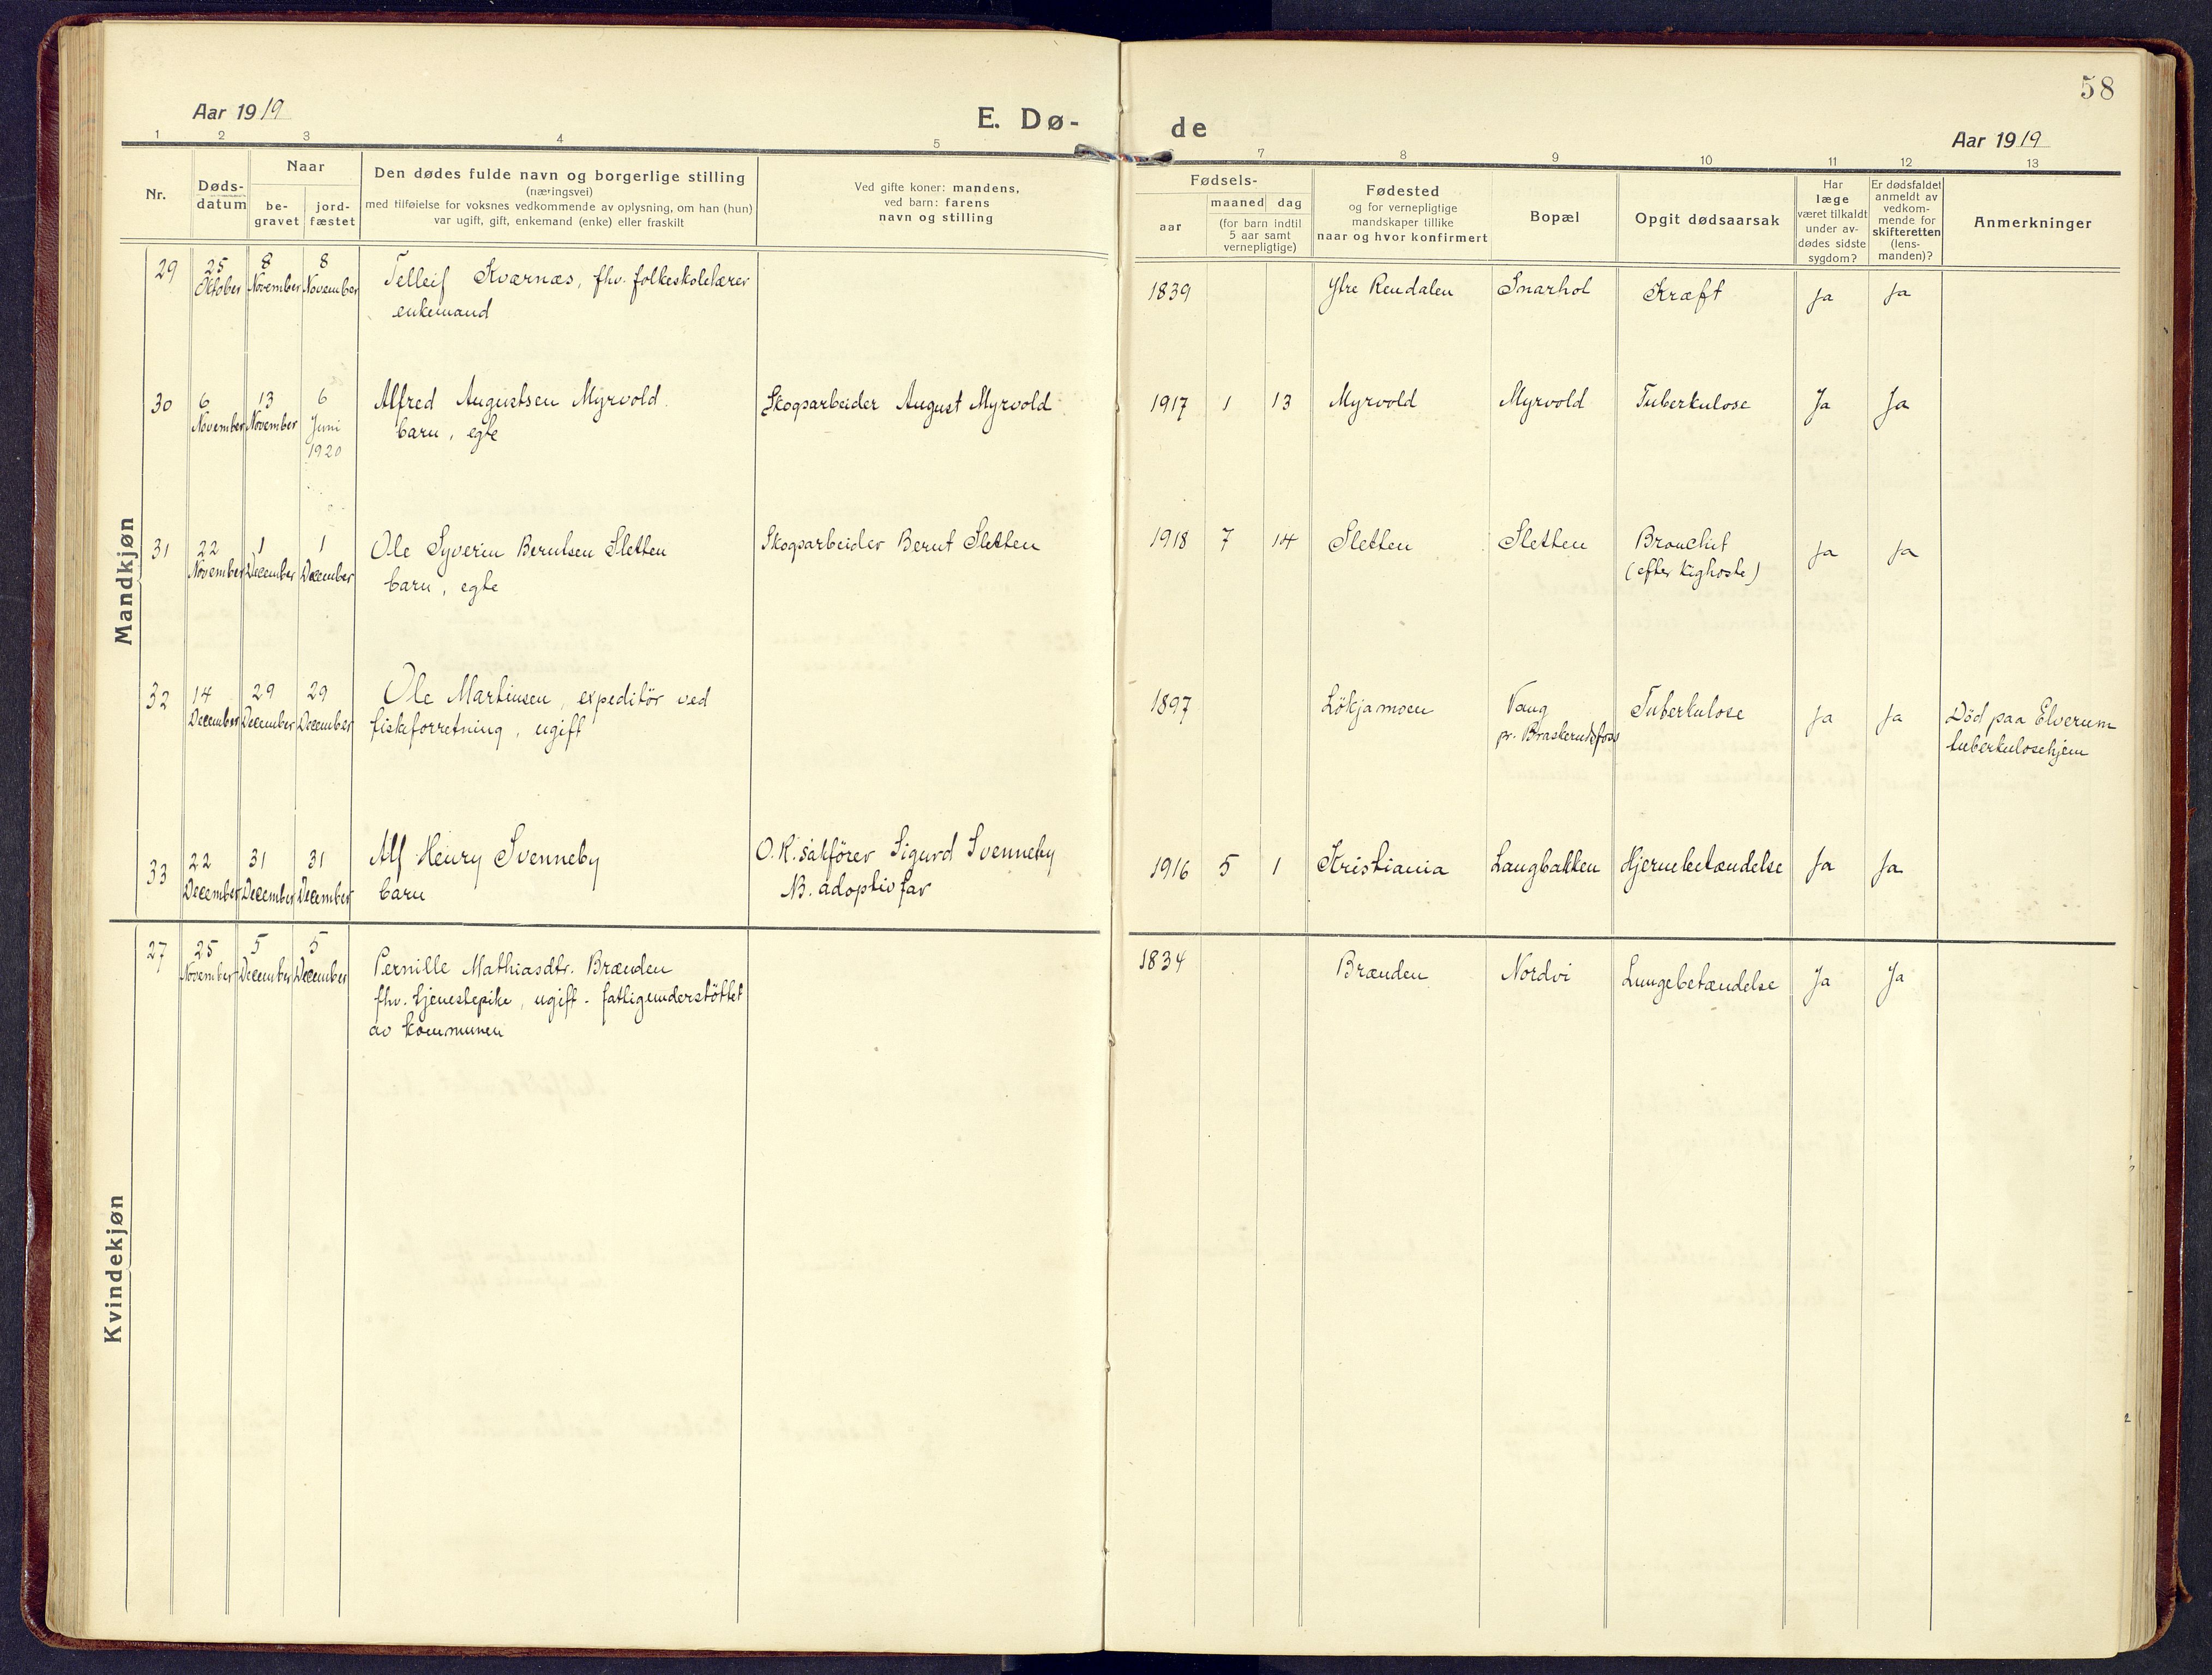 58
Aar 1919
E. Dø-
de
Aar 1919
1 2 3 4 5
7 8 9 10 11 12 13
Nr.
Døds-
datum
Naar
be-
gravet
jord-
fæstet
Den dødes fulde navn og borgerlige stilling
(næringsvei)
med tilføielse for voksnes vedkommende av oplysning, om han (hun)
var ugift, gift, enkemand (enke) eller fraskilt
Ved gifte koner: mandens,
ved barn: farens
navn og stilling
Fødsels-
aar
maaned dag
(for barn indtil
5 aar samt
vernepligtige)
Fødested
og for vernepligtige
mandskaper tillike
naar og hvor konfirmert
Bopæl
Opgit dødsaarsak
Har
læge
været tilkaldt
under av-
dødes sidste
sygdom?
Er dødsfaldet
anmeldt av
vedkom-
mende for
skifteretten
(lens-
manden)?
Anmerkninger
Mandkjøn
29
25
Oktober
8
November
8
November
Telleif Kværnæs, fhv. folkeskolelærer
enkemand
1839
Ytre Rendalen
Snarhol
Kræft
Ja
Ja
30
6
November
13
November
6
Juni
1920
Alfred Augustsen Myrvold.
barn, egte
Skogsarbeider August Myrvold
1917 1 13
Myrvold
Myrvold
Tuberkulose
Ja
Ja
31
22
November
1
December
1
December
Ole Syverin Berntsen Sletten
barn, egte
Skogsarbeider Bernt Sletten
1918 7 14
Sletten
Sletten
Bronchit
(efter kighoste)
Ja
Ja
32
14
December
29
December
29
December
Ole Martinsen, expeditör ved
fiskeforretning, ugift
1897
Lökjamoen
Vang
pr. Braskerudsfoss
Tuberkulose
Ja
Ja
Död paa Elverum
tuberkulosehjem
33
22
December
31
December
31
December
Alf Henry Svenneby
barn
O.R.sakförer Sigurd Svenneby
NB. adoptivfar
1916 5 1
Kristiania
Langbakken
Hjernebetændelse
Ja
Ja
Kvindekjøn
27
25
November
5
December
5
December
Pernille Mathiasdtr. Brænden
fhv. tjenestepike, ugift - fattigunderstöttet
av kommunen
1834
Brænden
Nordvi
Lungebetændelse
Ja
Ja